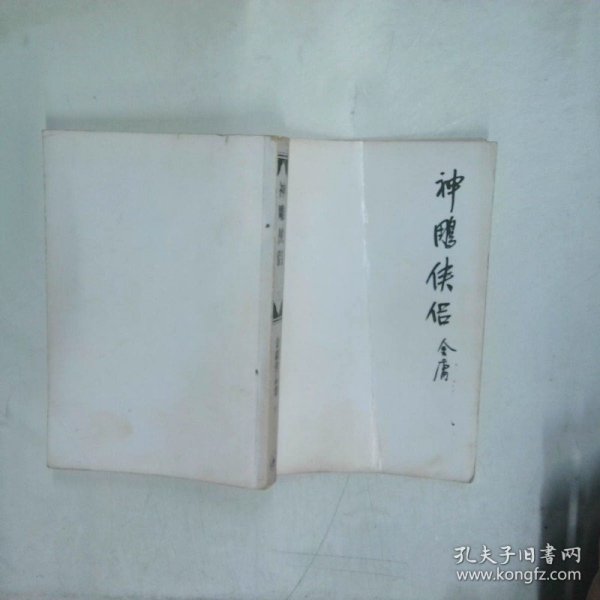 神鵰侠侣
金庸
神鵰侠侣
孔夫子旧书网
www.kongfz.com